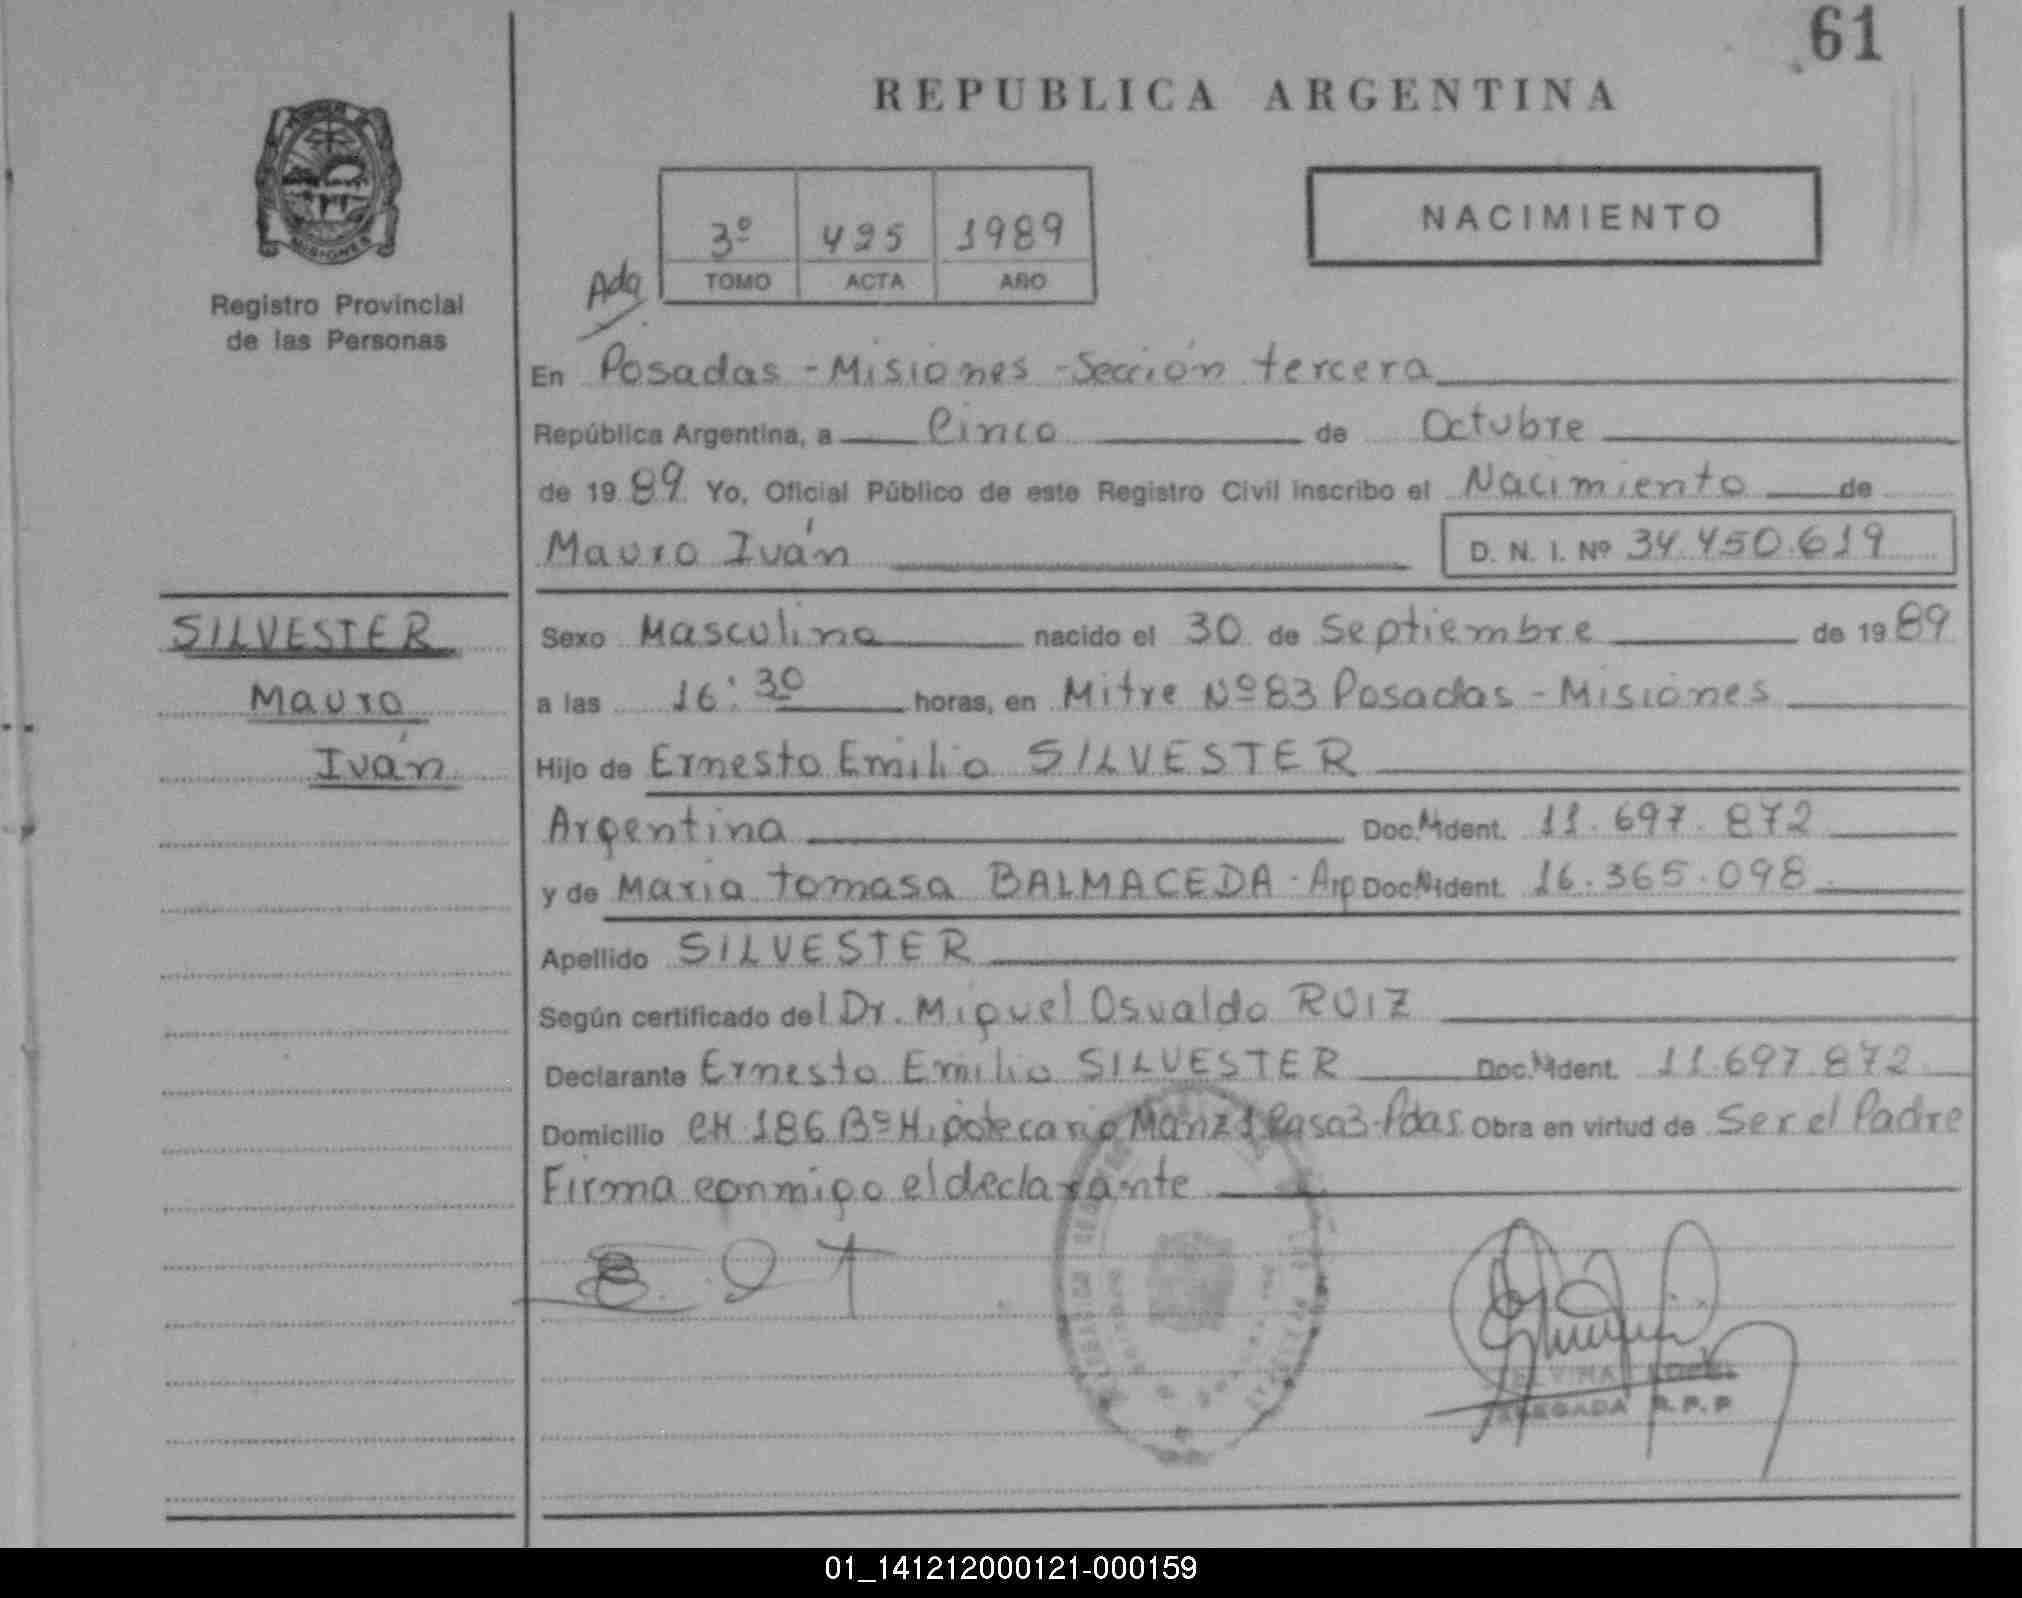 61
REPUBLICA ARGENTINA
MISIONES
Registro Provincial
de las Personas
3º 425 1989
TOMO ACTA AÑO
NACIMIENTO
Adq
En Posadas - Misiones - Sección tercera
República Argentina, a Cinco de Octubre
de 19 89 Yo, Oficial Público de este Registro Civil inscribo el Nacimiento de
Mauro Iván D. N. I. Nº 34.450.619
SILVESTER
Mauro
Iván
Sexo Masculino nacido el 30 de Septiembre de 19 89
a las 16:30 horas, en Mitre Nº 83 Posadas - Misiones
Hijo de Ernesto Emilio SILVESTER
Argentina Doc. Ident. 11.697.872
y de Maria tomasa BALMACEDA - Arg Doc. Ident. 16.365.098
Apellido SILVESTER
Según certificado del Dr. Miguel Osvaldo RUIZ
Declarante Ernesto Emilio SILVESTER Doc. Ident. 11.697.872
Domicilio CH 186 Bº Hipotecario Manz 1 Casa 3 - Pdas. Obra en virtud de Ser el Padre
Firma conmigo el declarante
R.P.P
01_141212000121-000159